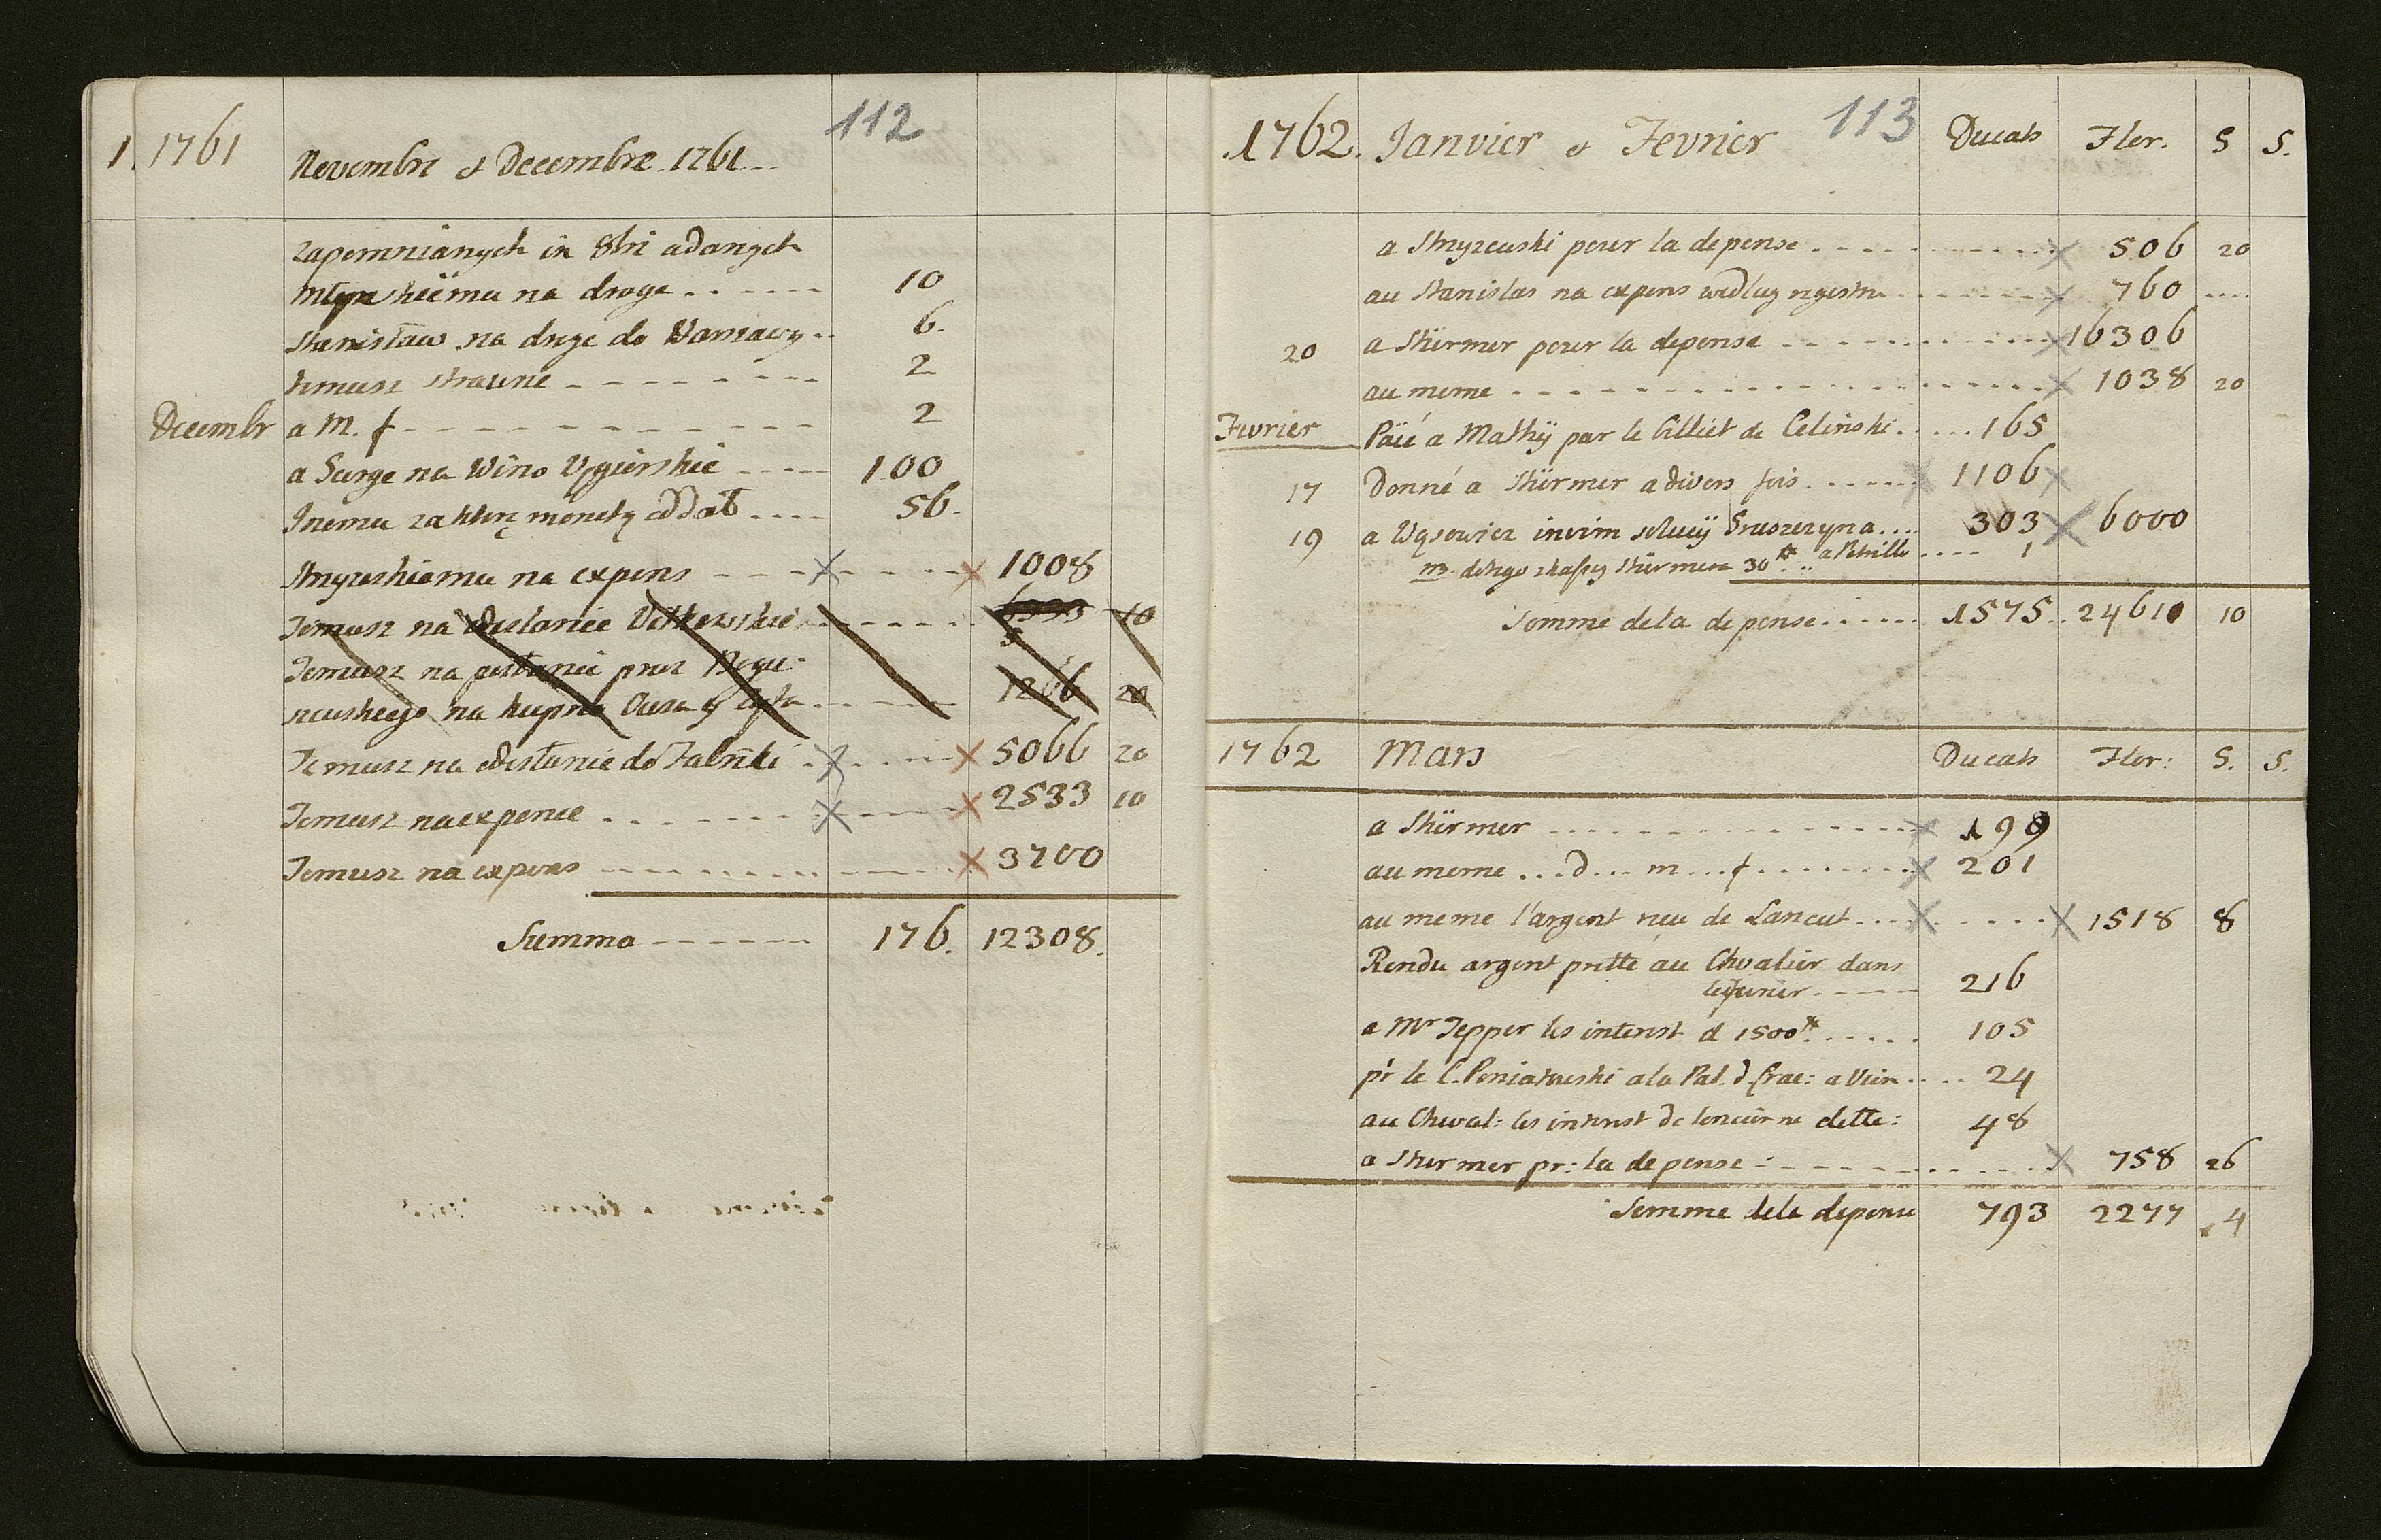 1. 1761 Novembre et Decembre 1761 112
zapomnianych in 8bri adanych
na droge 10
Stanisław na droge do Warszawy 6.
temusz strawne 2
Decembr a M. f 2
a Surge na Wino Vgierskie 100
Inemu za monety oddał 56.
na expens 1008
Temusz na odesłanie 10
Temusz na przez
na kupno Owsa y 1266 20
Temusz na odesłanie do 5066 20
Temusz na expence 2533 10
Temusz na expens 3700
Summa 176. 12308.
1762. Janvier et Fevrier 113 Ducats Flor. S S.
a Stryzewski pour la depense 506 20
au Stanislas na expens według regestru 760
20 a Stürmer pour la depense 16306
au meme 1038 20
Fevrier Païé a Mathÿ par le billiet de Celinski 165
17 Donné a Stürmer a divers fois 1106
19 a Wąsowicz 303 6000
Stürmera 30# a 1
Somme dela depense 1575 24610 10
1762 Mars Ducats Flor: S. S.
a Stürmer 199
au meme ...d... m...f 201
au meme l'argent reçu de Lancut 1518 8
Rendu argent prette au Chvalier dans
216
a Mr Tepper les interest d 1500# 105
pr le C. Poniatowski a la Pal. d Crac: a Vien 24
au Cheval: les interest de lencienne dette: 48
a Sturmer pr: la depense 758 26
Somme dela depense 793 2277 4